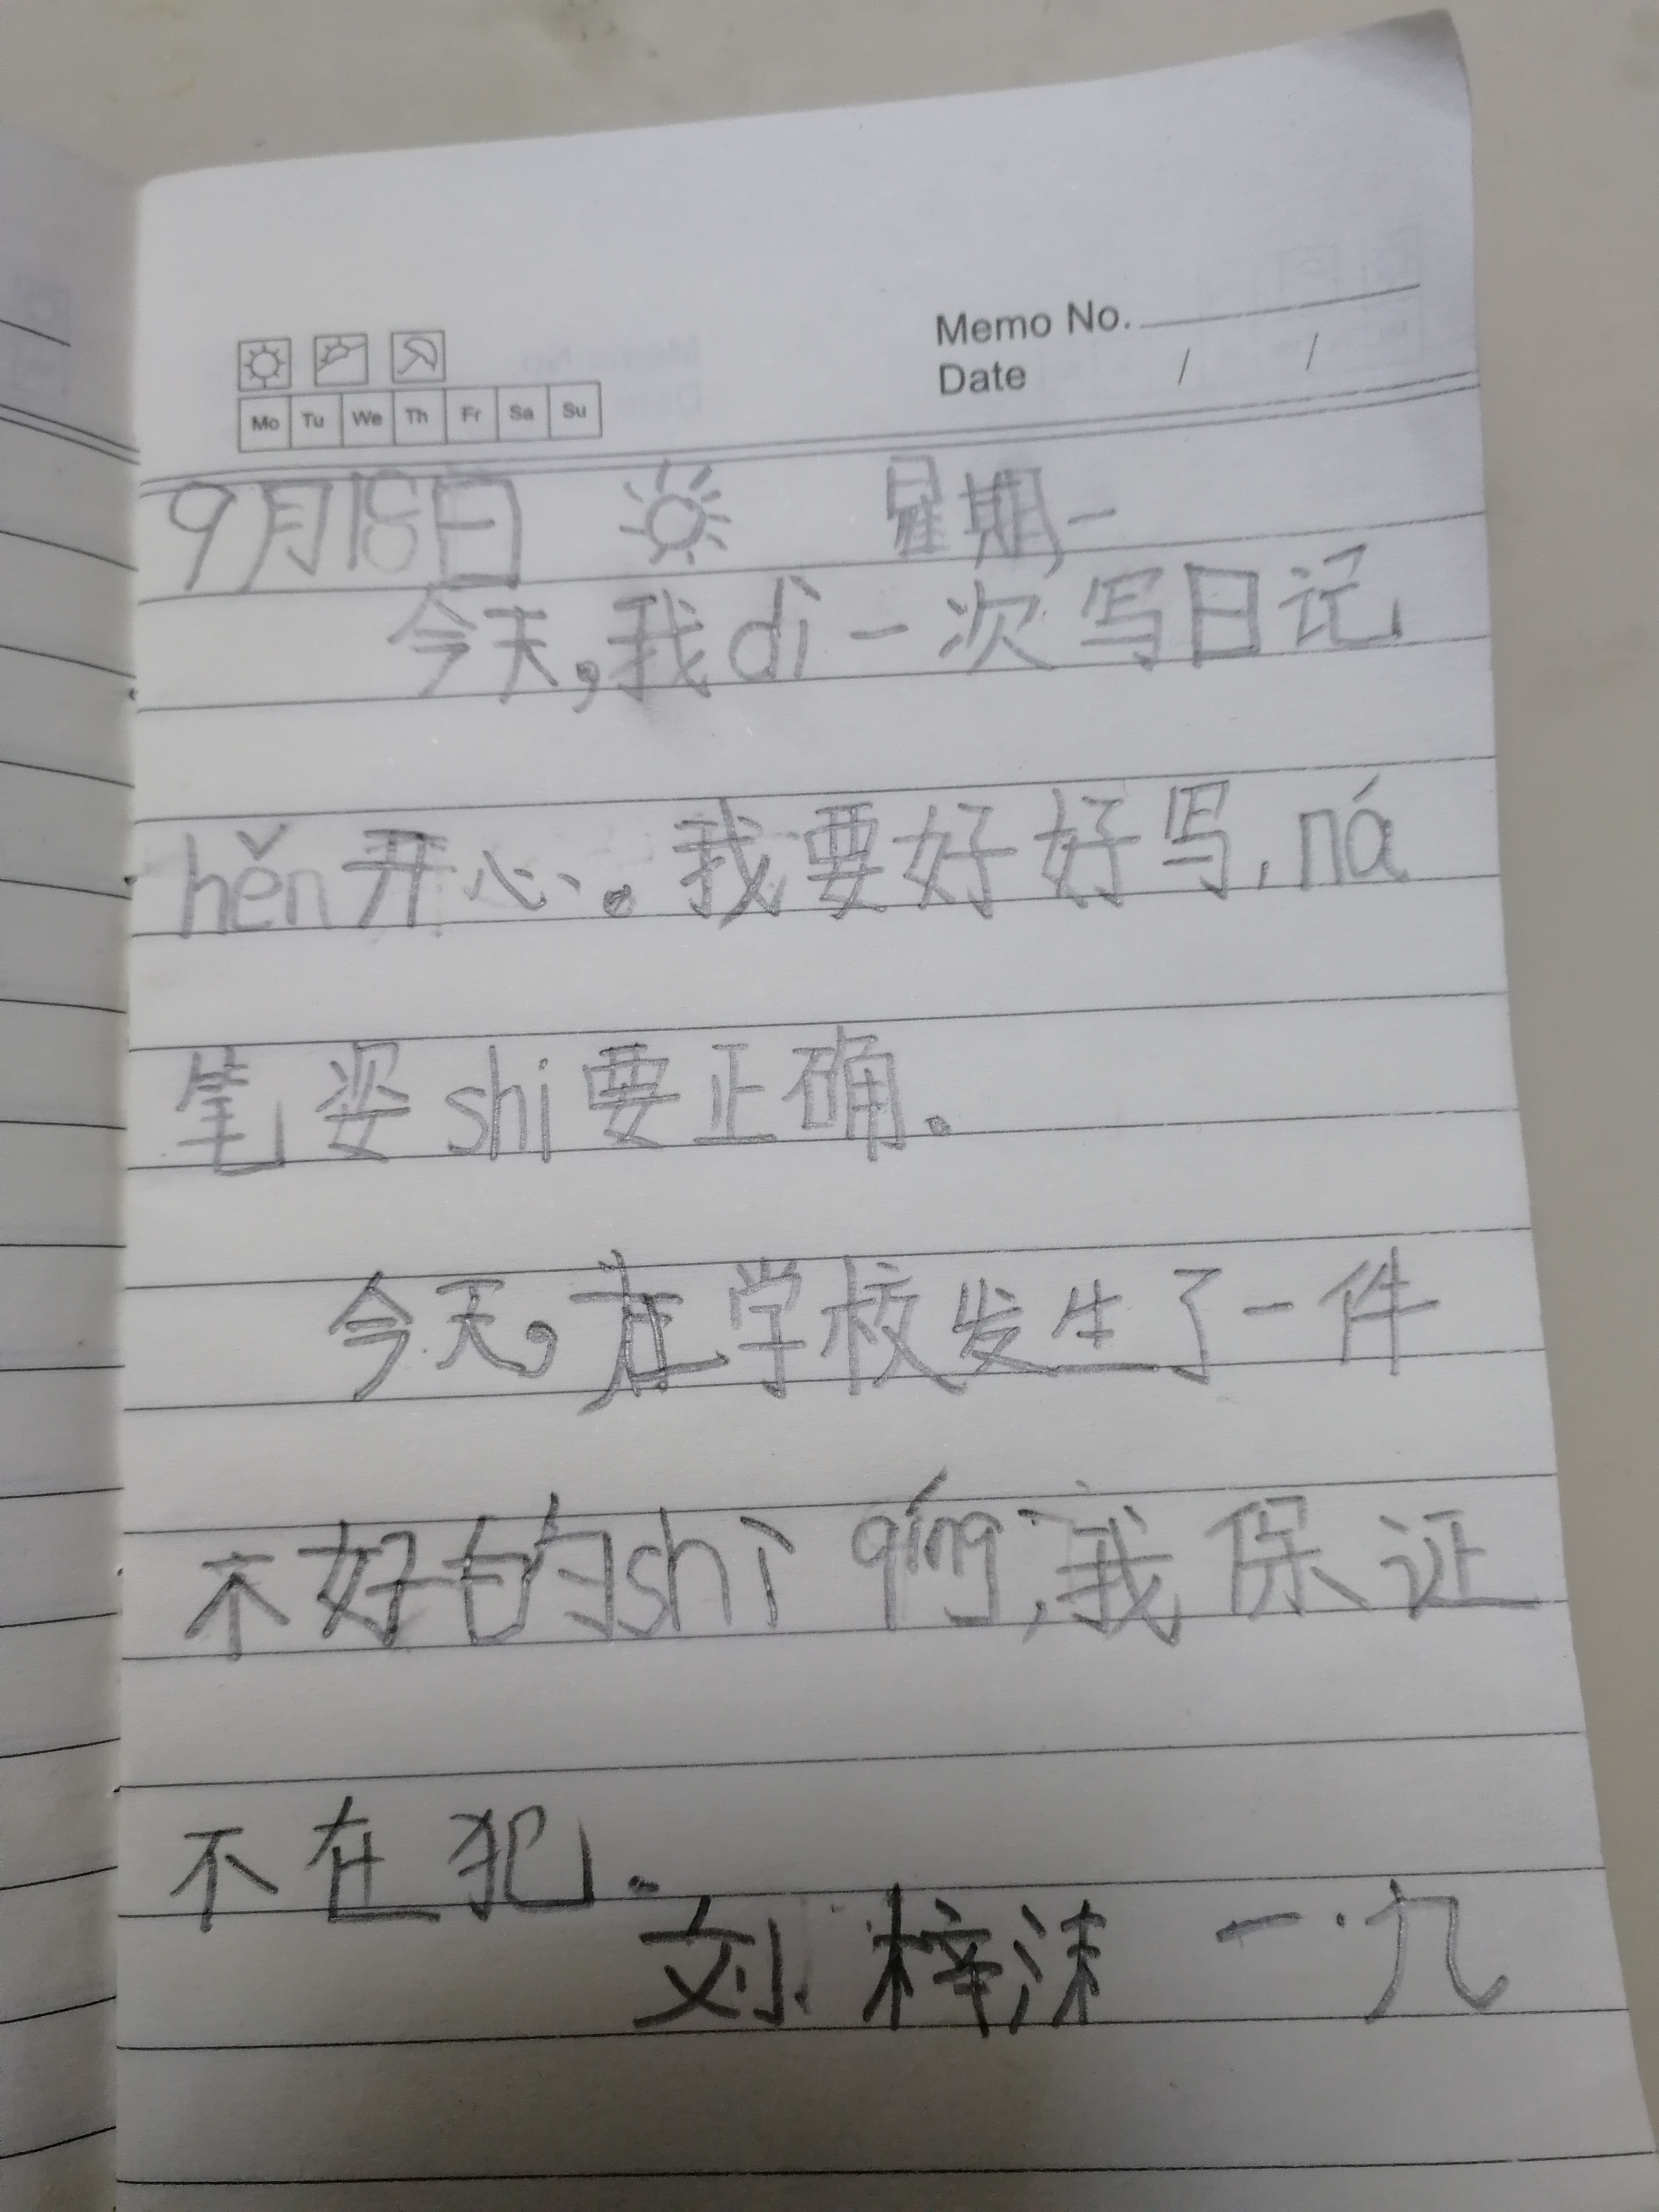 Memo No.
Date / /
Mo Tu We Th Fr Sa Su
9月18日 星期一
今天,我dì一次写日记
hěn开心。我要好好写,ná
笔姿shì要正确。
今天,在学校发生了一件
不好的shì qíng,我保证
不在犯.
刘梓沫 一.九